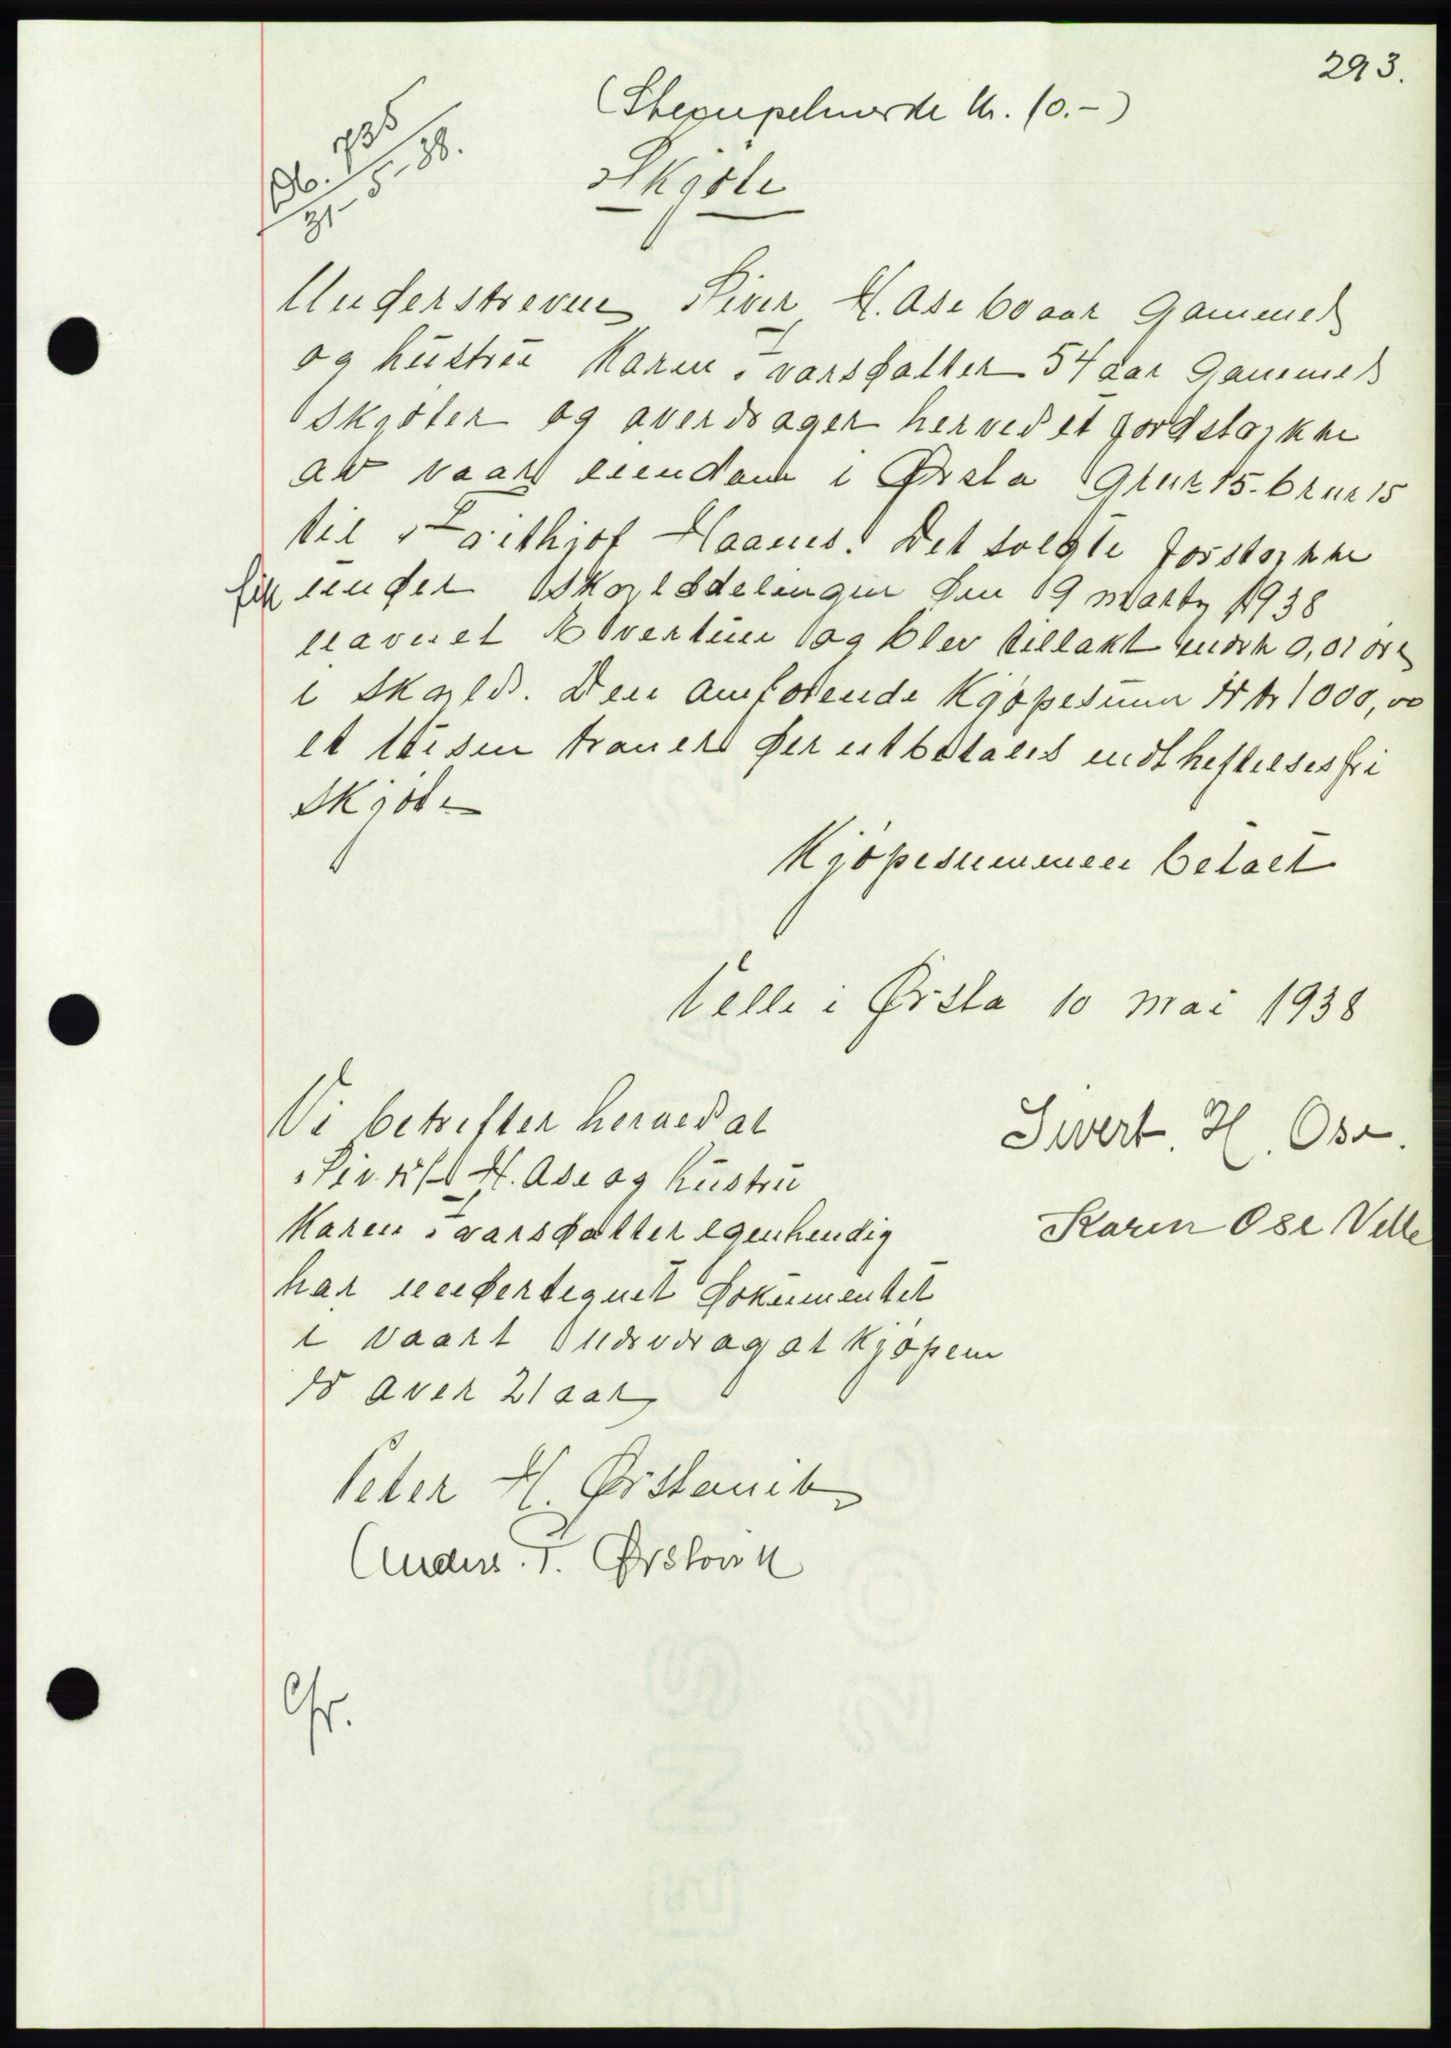 293.
(Stempelmerke kr. 10.-)
Db. 735
31-5-38.
Skjøte
Underskrevne Siver H. Ose 60 aar gammel
og hustru Karen Ivarsdatter 54 aar gammel
skjøter og overdrager herved et jordstøkke
av vaar eiendom i Ørsta grnr 15 - brnr 15
til Frithjof Haanes. Det solgte jorstøkke
fik under skyldelingen den 9 marts 1938
navnet Evertun og blev tillakt mark 0,01 øre
i skyld. Den omforende kjøpesum er kr 1000,00
et tusen kroner der utbetales mot heftelsesfri
skjøte
Kjøpesummen betalt
Velle i Ørsta 10 mai 1938
Vi bekrefter herved at
Sivert H. Ose og hustru
Karen Ivarsdatter egenhendig
har undertegnet dokumentet
i vaart nærvær og at kjøperen
er over 21 aar
Sivert. H. Ose.
Karen Ose Velle
Peter H. Ørstavik
Anders. P. Ørstavik